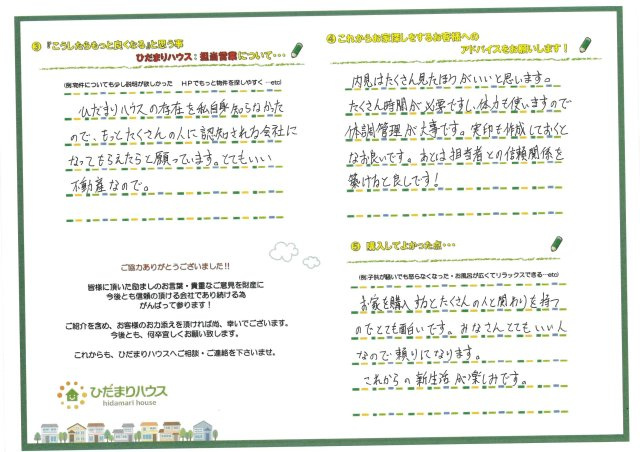 ③『こうしたらもっと良くなる』と思う事
ひだまりハウス：担当営業について・・・
(例:物件についても少し説明が欲しかった　HPでもっと物件を探しやすく …etc)
ひだまりハウスの存在を私自身知らなかた
ので、もっとたくさんの人に認知される会社に
なってもらえたらと願っています。とてもいい
不動産なので。
ご協力ありがとうございました!!
皆様に頂いた励ましのお言葉・貴重なご意見を財産に
今後とも信頼の頂ける会社であり続ける為
がんばって参ります！
ご紹介を含め、お客様のお力添えを頂ければ尚、幸いでございます。
今後とも、何卒宜しくお願い致します。
これからも、ひだまりハウスへご相談・ご連絡を下さいませ。
ひだまりハウス
hidamari house
④これからお家探しをするお客様への
アドバイスをお願いします！
内見はたくさん見たほうがいいと思います。
たくさん時間が必要ですし、体力も使いますので
体調管理が大事です。実印も作成しておくと
なお良いです。あとは担当者との信頼関係を
築ければ良しです！
⑤　購入してよかった点・・・
(例:子供が騒いでも怒らなくなった・お風呂が広くてリラックスできる…etc)
お家を購入するとたくさんの人と関わりを持つ
のでとても面白いです。みなさんとてもいい人
なので頼りになります。
これからの新生活が楽しみです。